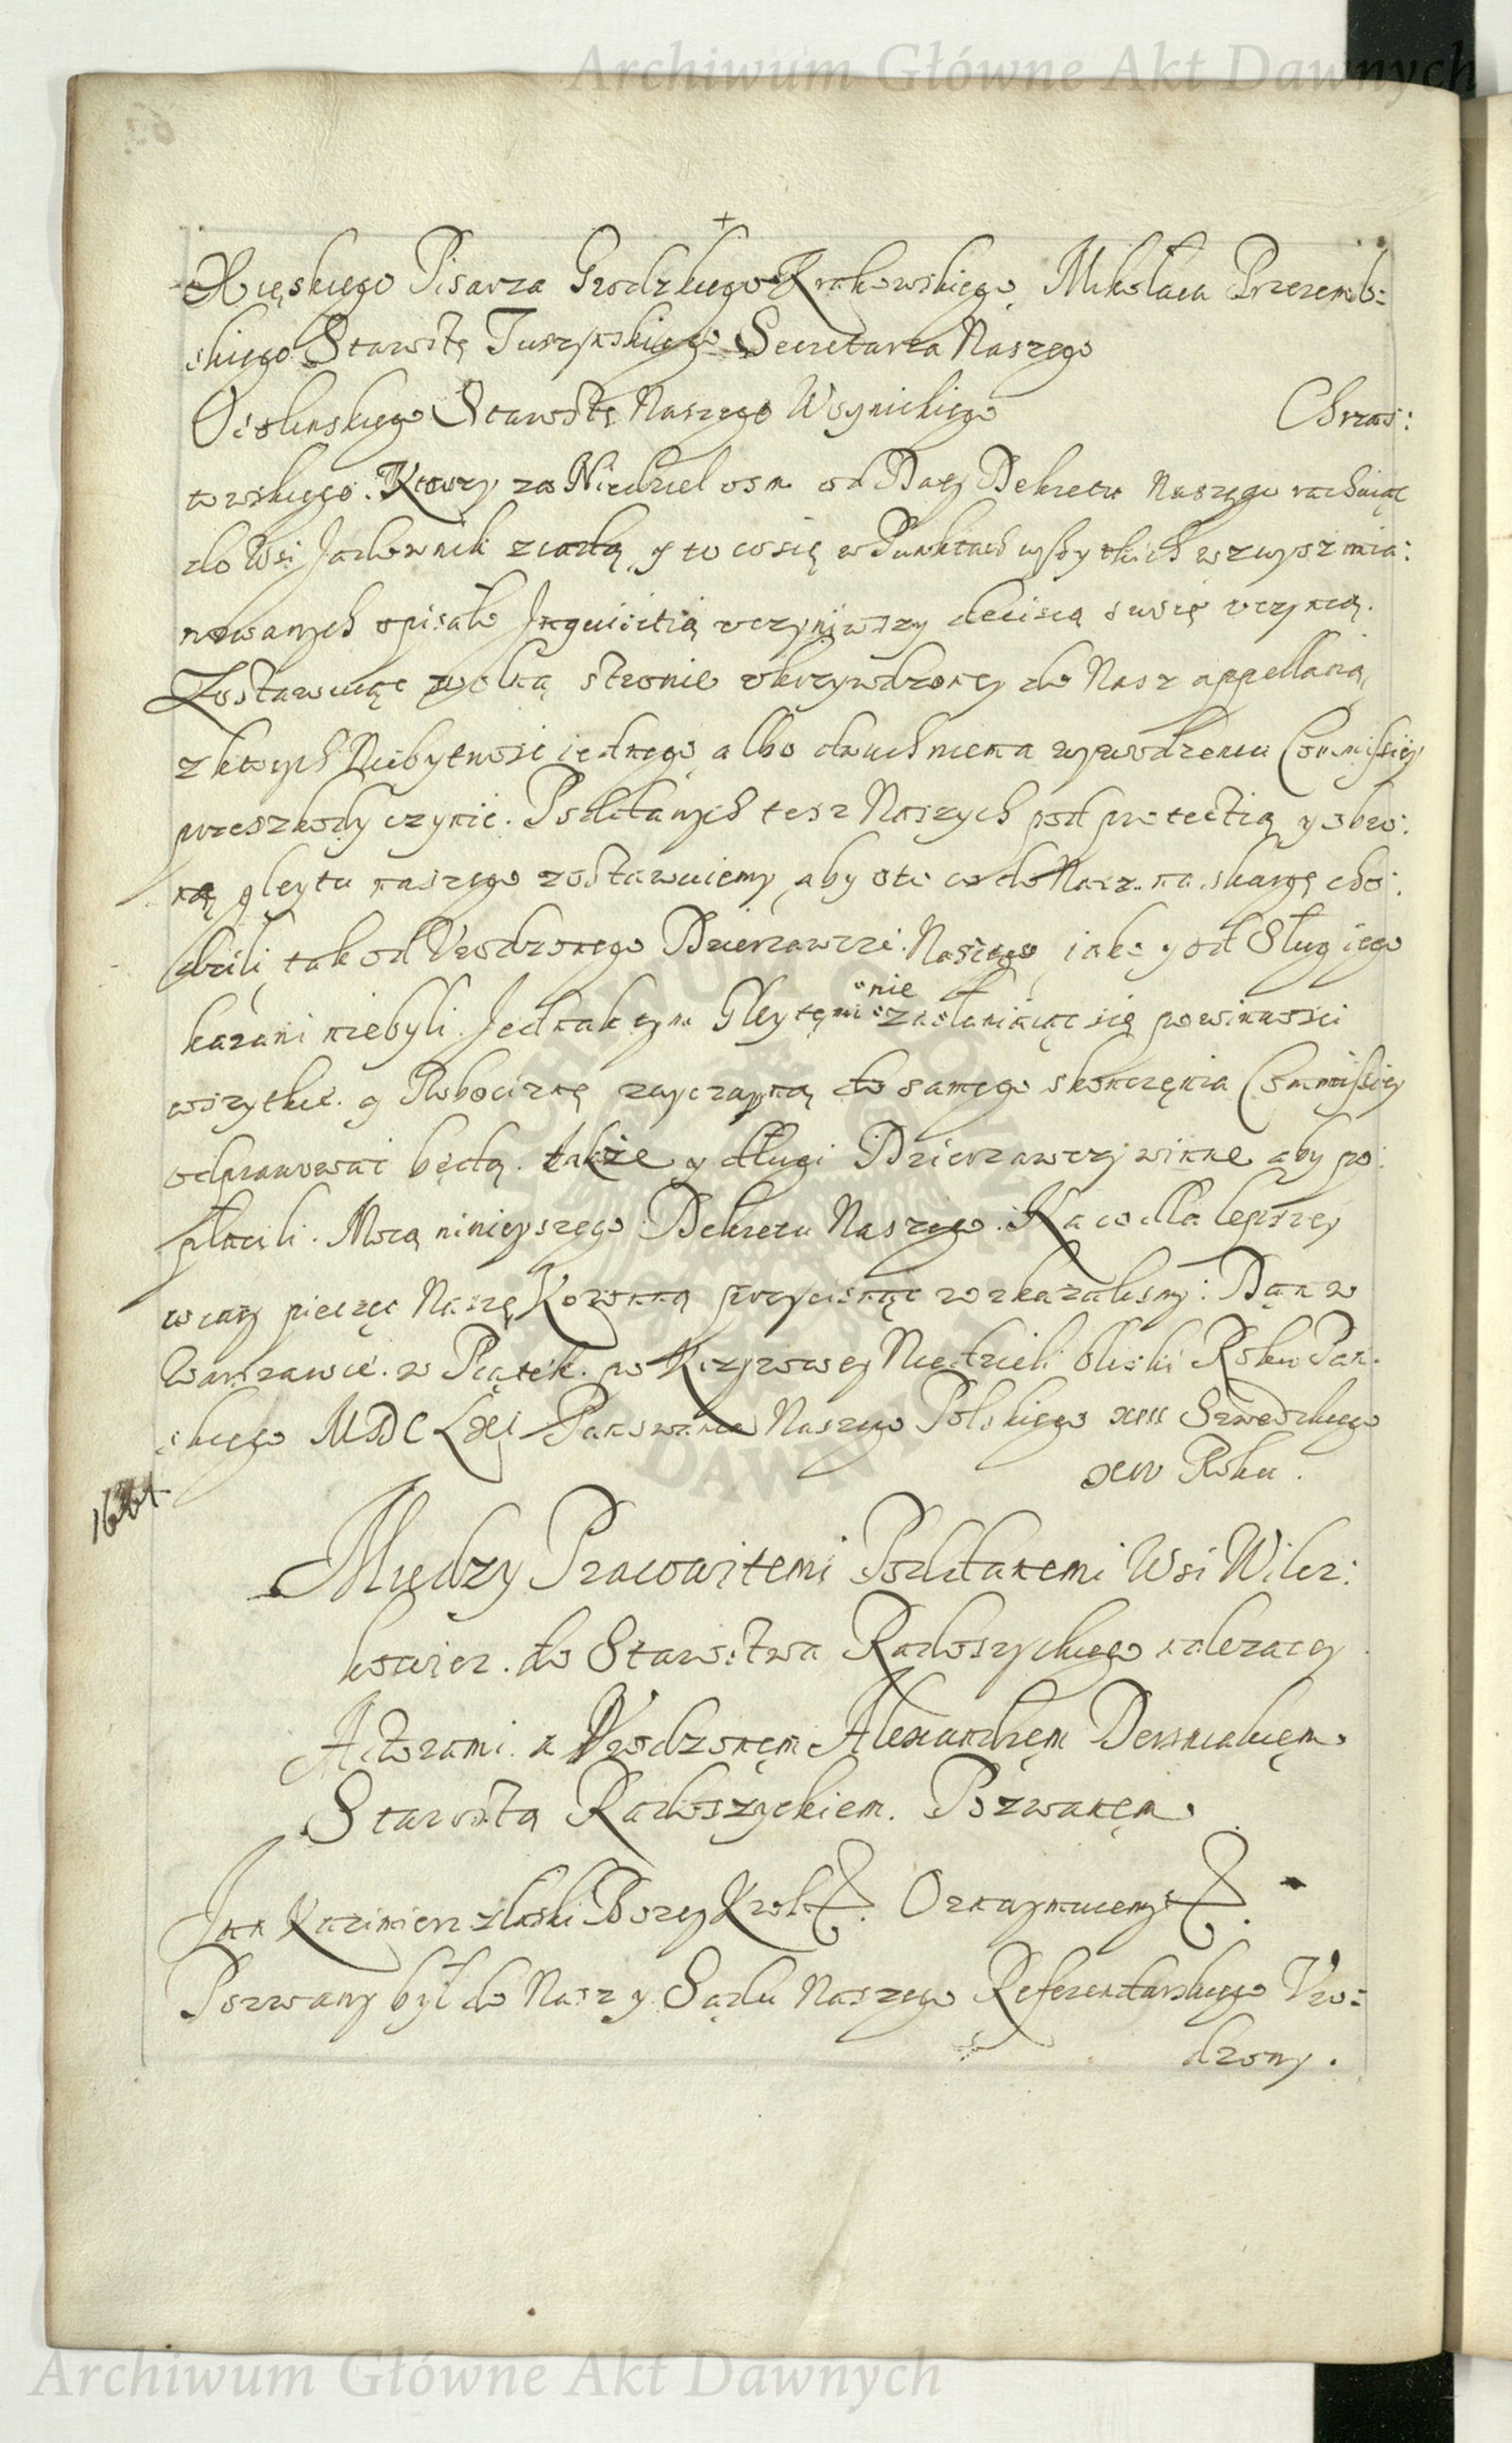 Archiwum Główne Akt Dawnych
Xięskiego Pisarza Grodzkiego Krakowskiego, Mikołaia Przeremb:
skiego Starostę Tuszynskiego Secretarza Naszego
Ossolinskiego Starostę Naszego Woynickiego Chrząs:
towskiego. Ktorzy za Niedziel osm od Daty Dekretu Naszego rachuiąc
do Wsi Jadownik ziadą, y to co się w Punktach wszytkich wzwysz mia:
nowanych opisało Inquisitią uczyniwszy decisią swoię uczynią.
Zostawuiąc wolną stronie ukrzywdzoney do Nasz appellatią,
z ktorych Niebytnosc iednego albo dwuch niema wywodzeniu Commissiey
przeszkody czynic. Poddanych tesz Naszych pod protectią y obro:
ną gleytu naszego zostawuiemy, aby oto co do Nasz na skargę cho:
dzili, tak od Urodzonego Dzierzawcze Naszego, iako y od Sług iego
karani niebyli. Jednak tym Gleytem nie zasłaniaiąc się powinnosci
wszytkie y Robociznę zwyczayną do samego skonczenia Commissiey
odprawowac będą. także y długi Dzierzawcy winne aby po:
płacili. Mocą ninieyszego Dekretu Naszego. Na co dla lepszey
wiary pieczęc Naszę Koronną przycisnąc rozkazalismy. Dan w
Warszawie. w Piątek po Krzyzowey Niedzieli bliski Roku Pan:
skiego MDCLXI Panowania Naszego Polskiego XIII Szwedzkiego
XIV Roku.
1661
Między Pracowitemi Poddanemi Wsi Wilcz:
kowicz. do Starostwa Radoszyckiego nalezacey
Actorami. a Urodzonem Alexandrem Dersniakiem
Starostą Radoszyckiem. Pozwanem.
Jan Kazimierz z łaski Bozey Krol &. Oznaymuiemy &.
Pozwany był do Nasz y Sądu Naszego Referendarskiego Uro:
dzony.
Archiwum Główne Akt Dawnych